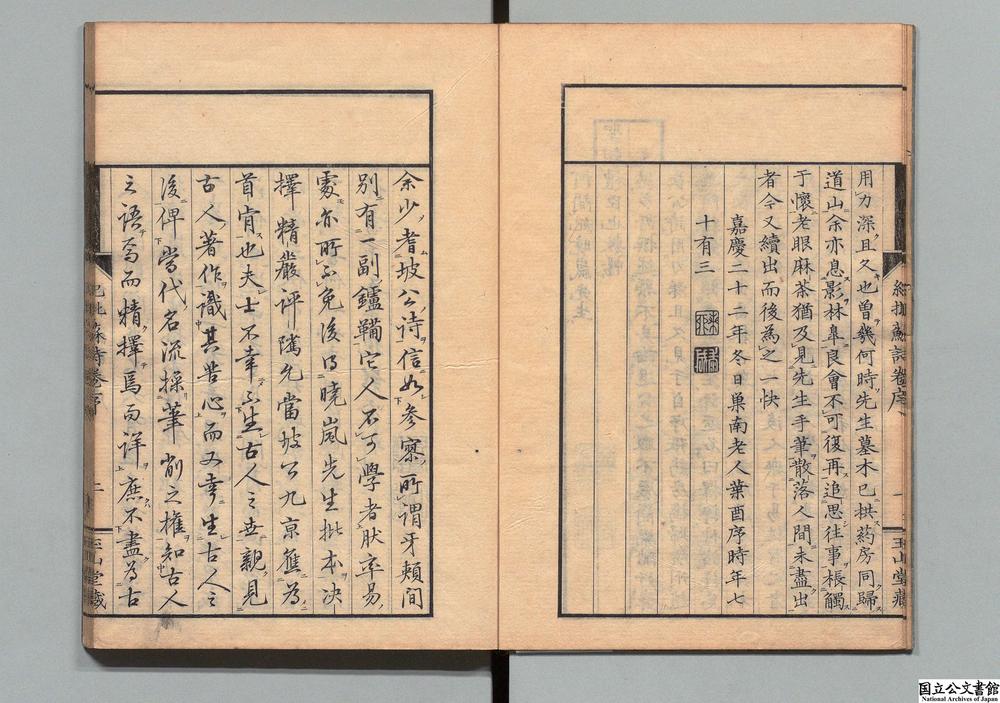 用力深且久也曾幾何時先生墓木已拱葯房同歸
道山余亦息影林皐良會不可復再追思往事棖觸
于懷老眼麻茶猶及見先生手筆散落人間未盡出
者今又續出而後爲之一快
嘉慶二十二年冬日巢南老人葉酉序時年七
十有三
紀批蘇詩卷序
一
玉山堂藏
余少耆坡公詩信如參寥所謂牙頰間
別有一副鑪鞴它人不可學者肰率易
處亦所不免後得曉嵐先生批本決
擇精嚴評隲允當坡公九京應爲
首肯也夫士不幸不生古人之世親見
古人著作識其苦心而又幸生古人之
後俾當代名流操筆削之權知古人
之語奇而精擇焉而詳庶不盡爲古
紀批蘇詩卷序
二
玉山堂藏
国立公文書館
National Archives of Japan